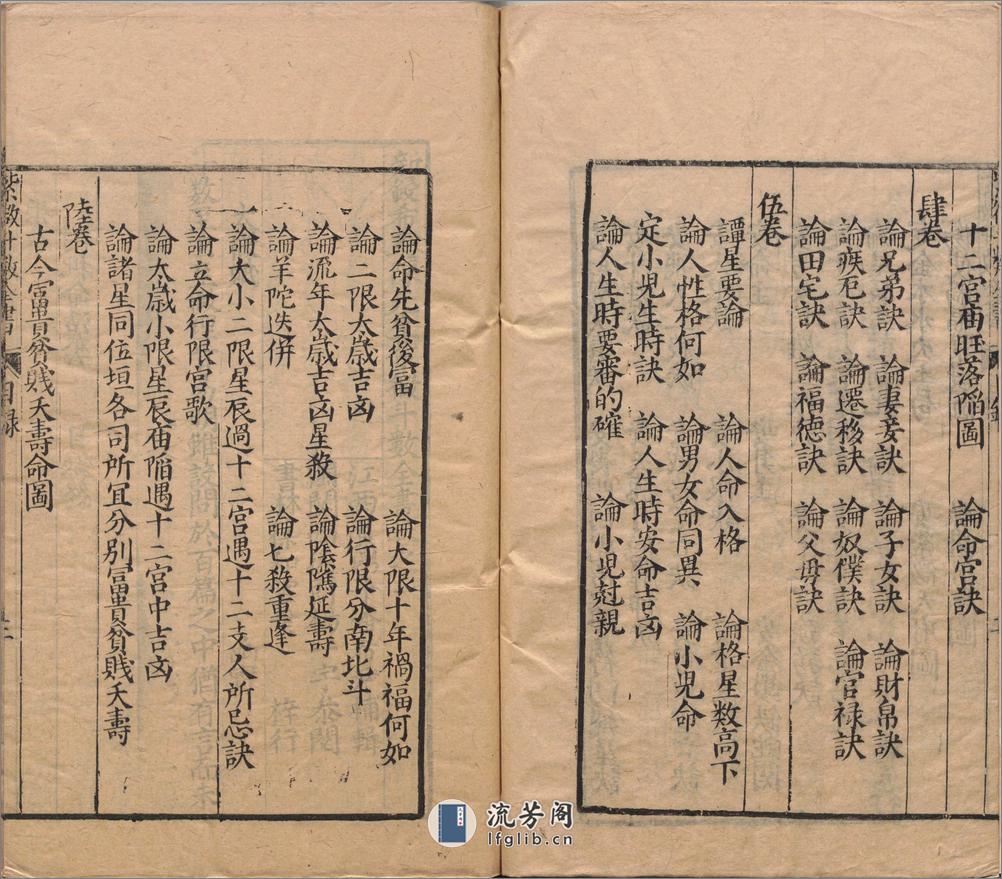 十二宫庙旺落陷圖　論命宫訣
肆卷
論兄弟訣　論妻妾訣　論子女訣　論財帛訣
論疾厄訣　論遷移訣　論奴僕訣　論官禄訣
論田宅訣　論福德訣　論父母訣
伍卷
譚星要論　論人命入格　論格星數高下
論人性格何如　論男女命同異　論小児命
定小児生時訣　論人生時安命吉凶
論人生時要審的確　論小児尅親
論命先貧後富　論大限十年禍福何如
論二限太歳吉凶　論行限分南北斗
論流年太歳吉凶星殺　論陰隲延壽
論羊陀迭併　論七殺重逢
論大小二限星辰過十二宫遇十二支人所忌訣
論立命行限宫歌
論太歳小限星辰庙陷遇十二宫中吉凶
論諸星同位垣各司所冝分别富貴貧賤夭壽
陸卷
古今富貴貧賤夭壽命圖
目録
流芳阁
lfglib.cn